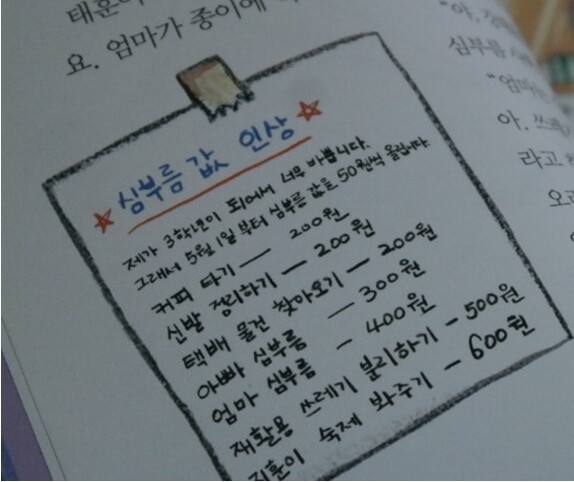 태훈
요. 엄마가 종이에
심부름 값 인상
제가 3학년이 되어서 너무 바쁩니다.
그래서 5월 1일부터 심부름 값을 50원씩 올립니다.
커피 타기 — 200원
신발 정리하기 — 200원
택배 물건 찾아오기 — 200원
아빠 심부름 — 300원
엄마 심부름 — 400원
재활용 쓰레기 분리하기 — 500원
지훈이 숙제 봐주기 — 600원
"아,
심부름
"엄마
아.
라고